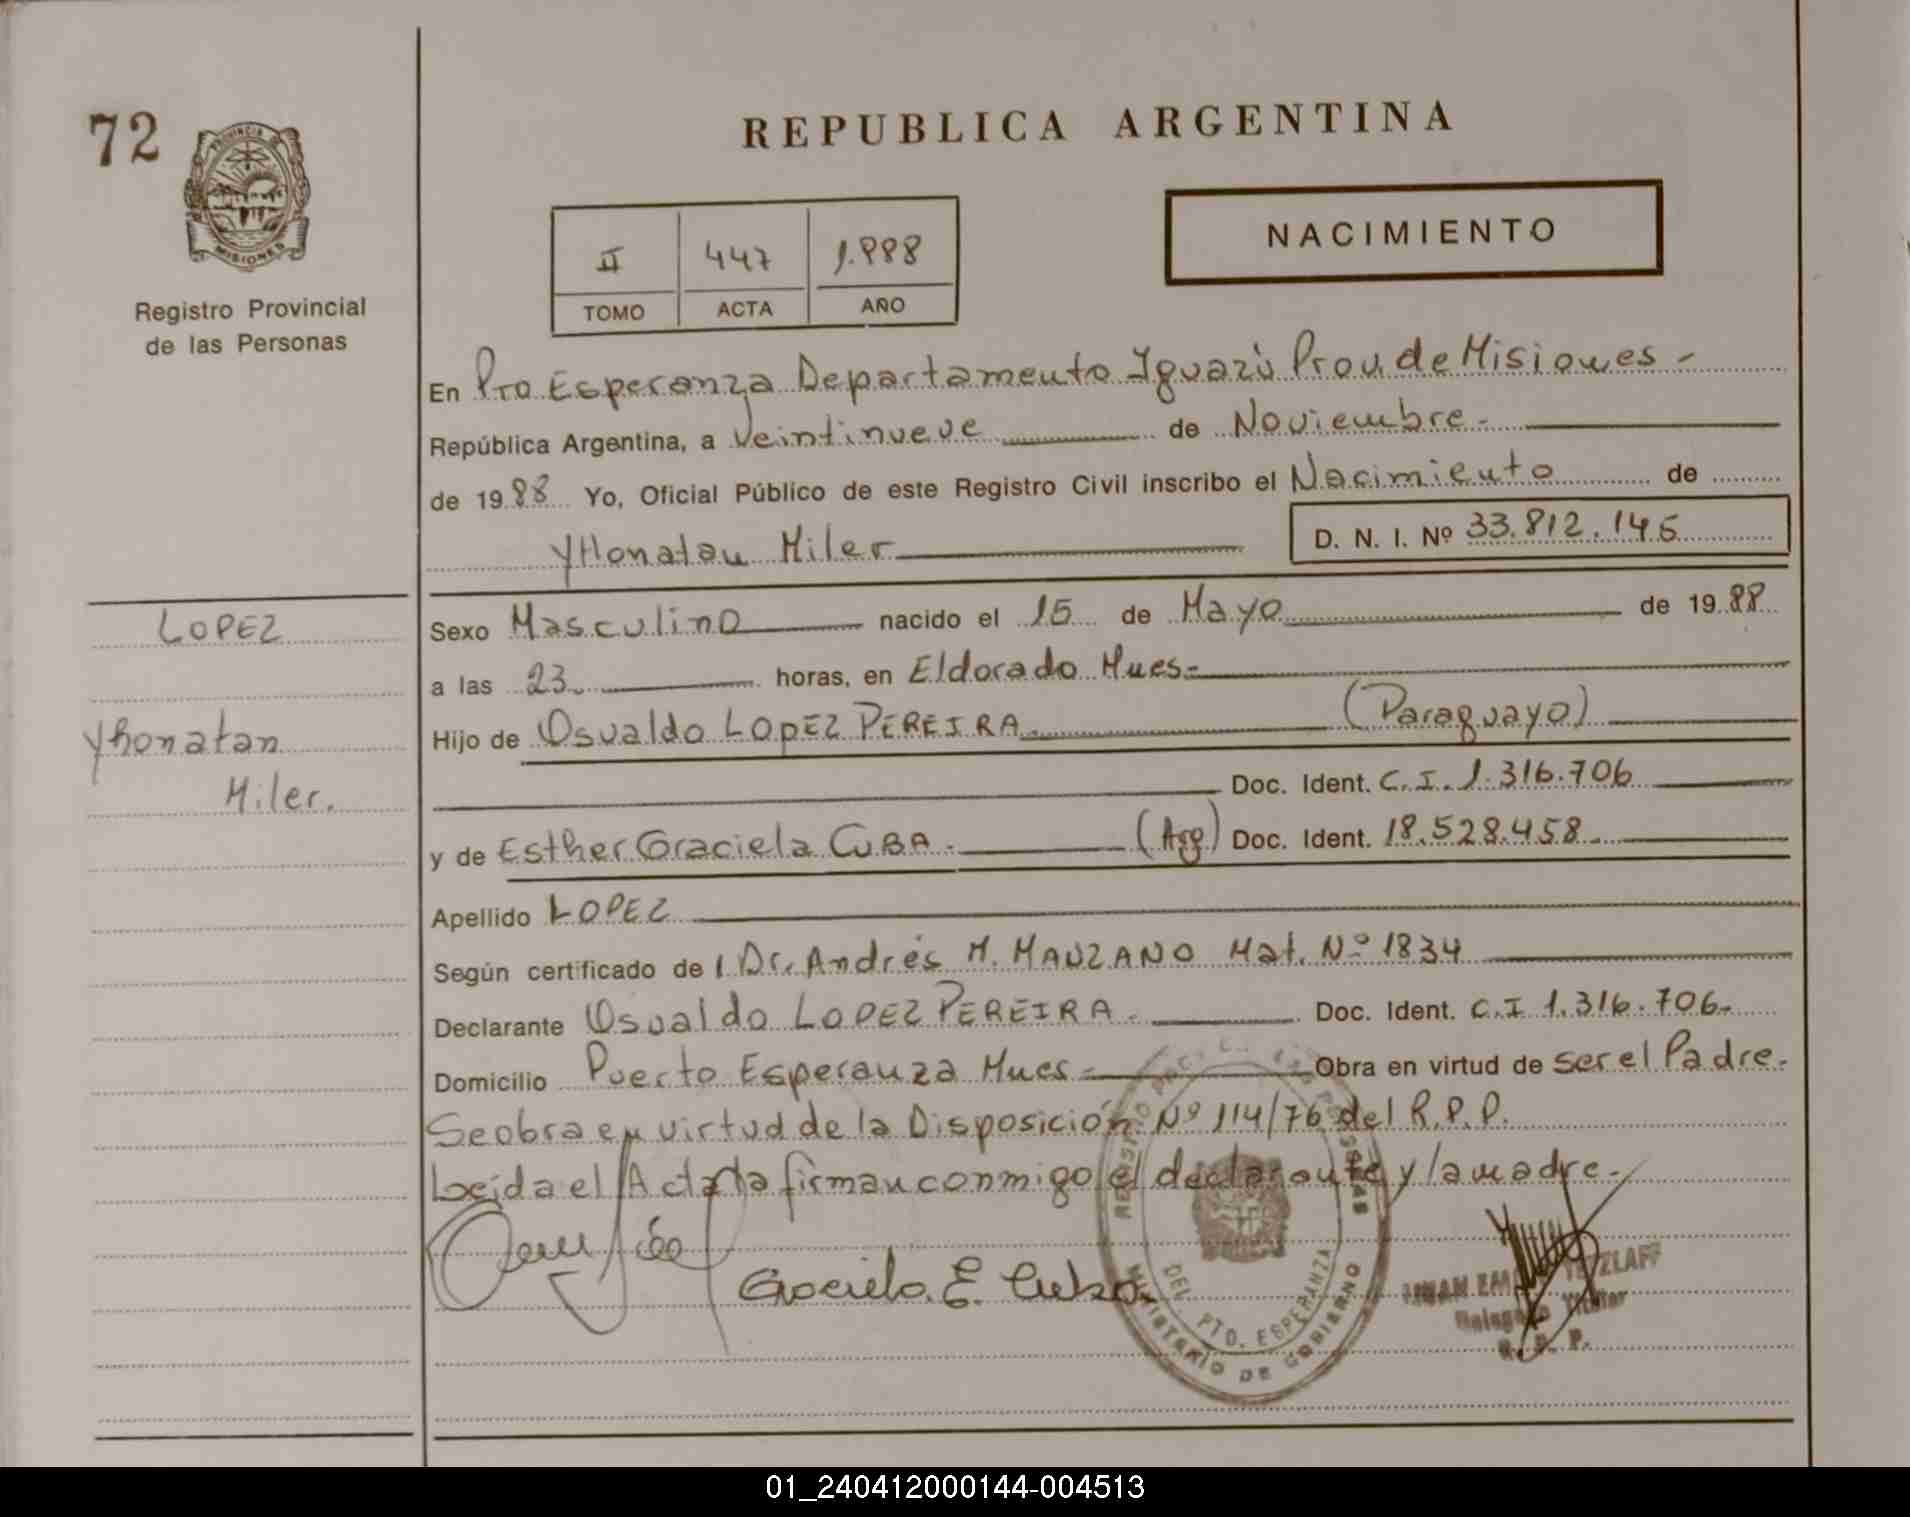 72
PROVINCIA DE
MISIONES
Registro Provincial
de las Personas
REPUBLICA ARGENTINA
NACIMIENTO
II 447 1.988
TOMO ACTA AÑO
En Pto Esperanza Departamento Iguazú Prov. de Misiones -
República Argentina, a Veintinueve de Noviembre -
de 1988 Yo, Oficial Público de este Registro Civil inscribo el Nacimiento de
YHonatan Miler
D. N. I. Nº 33.812.145
LOPEZ
Yhonatan
Miler.
Sexo Masculino nacido el 15 de Mayo de 1988
a las 23 horas, en Eldorado Mnes-
Hijo de Osvaldo LOPEZ PEREIRA (Paraguayo)
Doc. Ident. C.I. 1.316.706
y de Esther Graciela CUBA. (Arg) Doc. Ident. 18.528.458
Apellido LOPEZ
Según certificado de Dr. Andrés M. MANZANO Mat. Nº 1834
Declarante Osvaldo LOPEZ PEREIRA. Doc. Ident. C.I 1.316.706.
Domicilio Puerto Esperanza Mnes- Obra en virtud de ser el Padre.
Se obra en virtud de la Disposición Nº 114/76 del R.P.P.
Leida el Acta la firman conmigo el declarante y la madre.
Graciela E. Cuba
DEL PTO. ESPERANZA
MINISTERIO DE GOBIERNO
TETZLAFF
Delegado Titular
R. P. P.
01_240412000144-004513